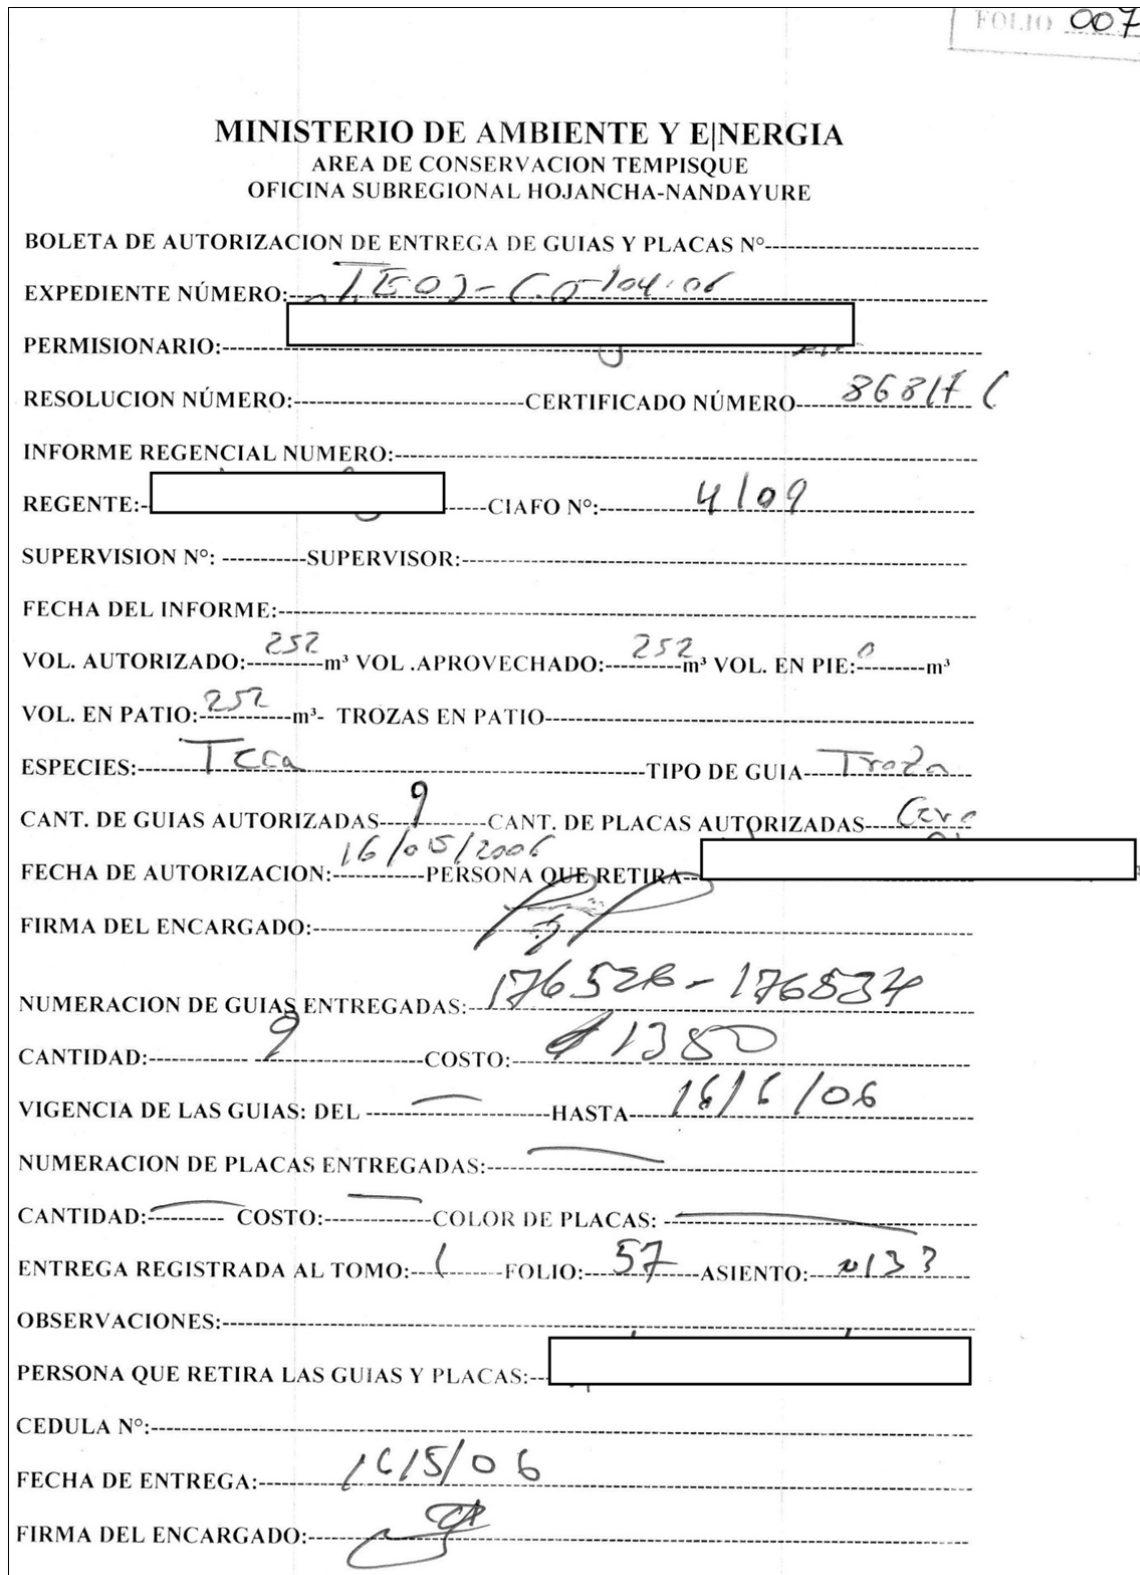 FOLIO 007
MINISTERIO DE AMBIENTE Y E|NERGIA
AREA DE CONSERVACION TEMPISQUE
OFICINA SUBREGIONAL HOJANCHA-NANDAYURE
BOLETA DE AUTORIZACION DE ENTREGA DE GUIAS Y PLACAS N°
EXPEDIENTE NÚMERO:
PERMISIONARIO:
RESOLUCION NÚMERO: CERTIFICADO NÚMERO
INFORME REGENCIAL NUMERO:
REGENTE: CIAFO N°: 4109
SUPERVISION N°: SUPERVISOR:
FECHA DEL INFORME:
VOL. AUTORIZADO: 252 m³ VOL .APROVECHADO: 252 m³ VOL. EN PIE: 0 m³
VOL. EN PATIO: 252 m³- TROZAS EN PATIO
ESPECIES: Teca TIPO DE GUIA Troza
CANT. DE GUIAS AUTORIZADAS 9 CANT. DE PLACAS AUTORIZADAS Cero
FECHA DE AUTORIZACION: 16/05/2006 PERSONA QUE RETIRA
FIRMA DEL ENCARGADO:
NUMERACION DE GUIAS ENTREGADAS: 176526-176534
CANTIDAD: 9 COSTO: ¢1350
VIGENCIA DE LAS GUIAS: DEL HASTA 16/6/06
NUMERACION DE PLACAS ENTREGADAS:
CANTIDAD: COSTO: COLOR DE PLACAS:
ENTREGA REGISTRADA AL TOMO: 1 FOLIO: 57 ASIENTO:
OBSERVACIONES:
PERSONA QUE RETIRA LAS GUIAS Y PLACAS:
CEDULA N°:
FECHA DE ENTREGA: 16/5/06
FIRMA DEL ENCARGADO: